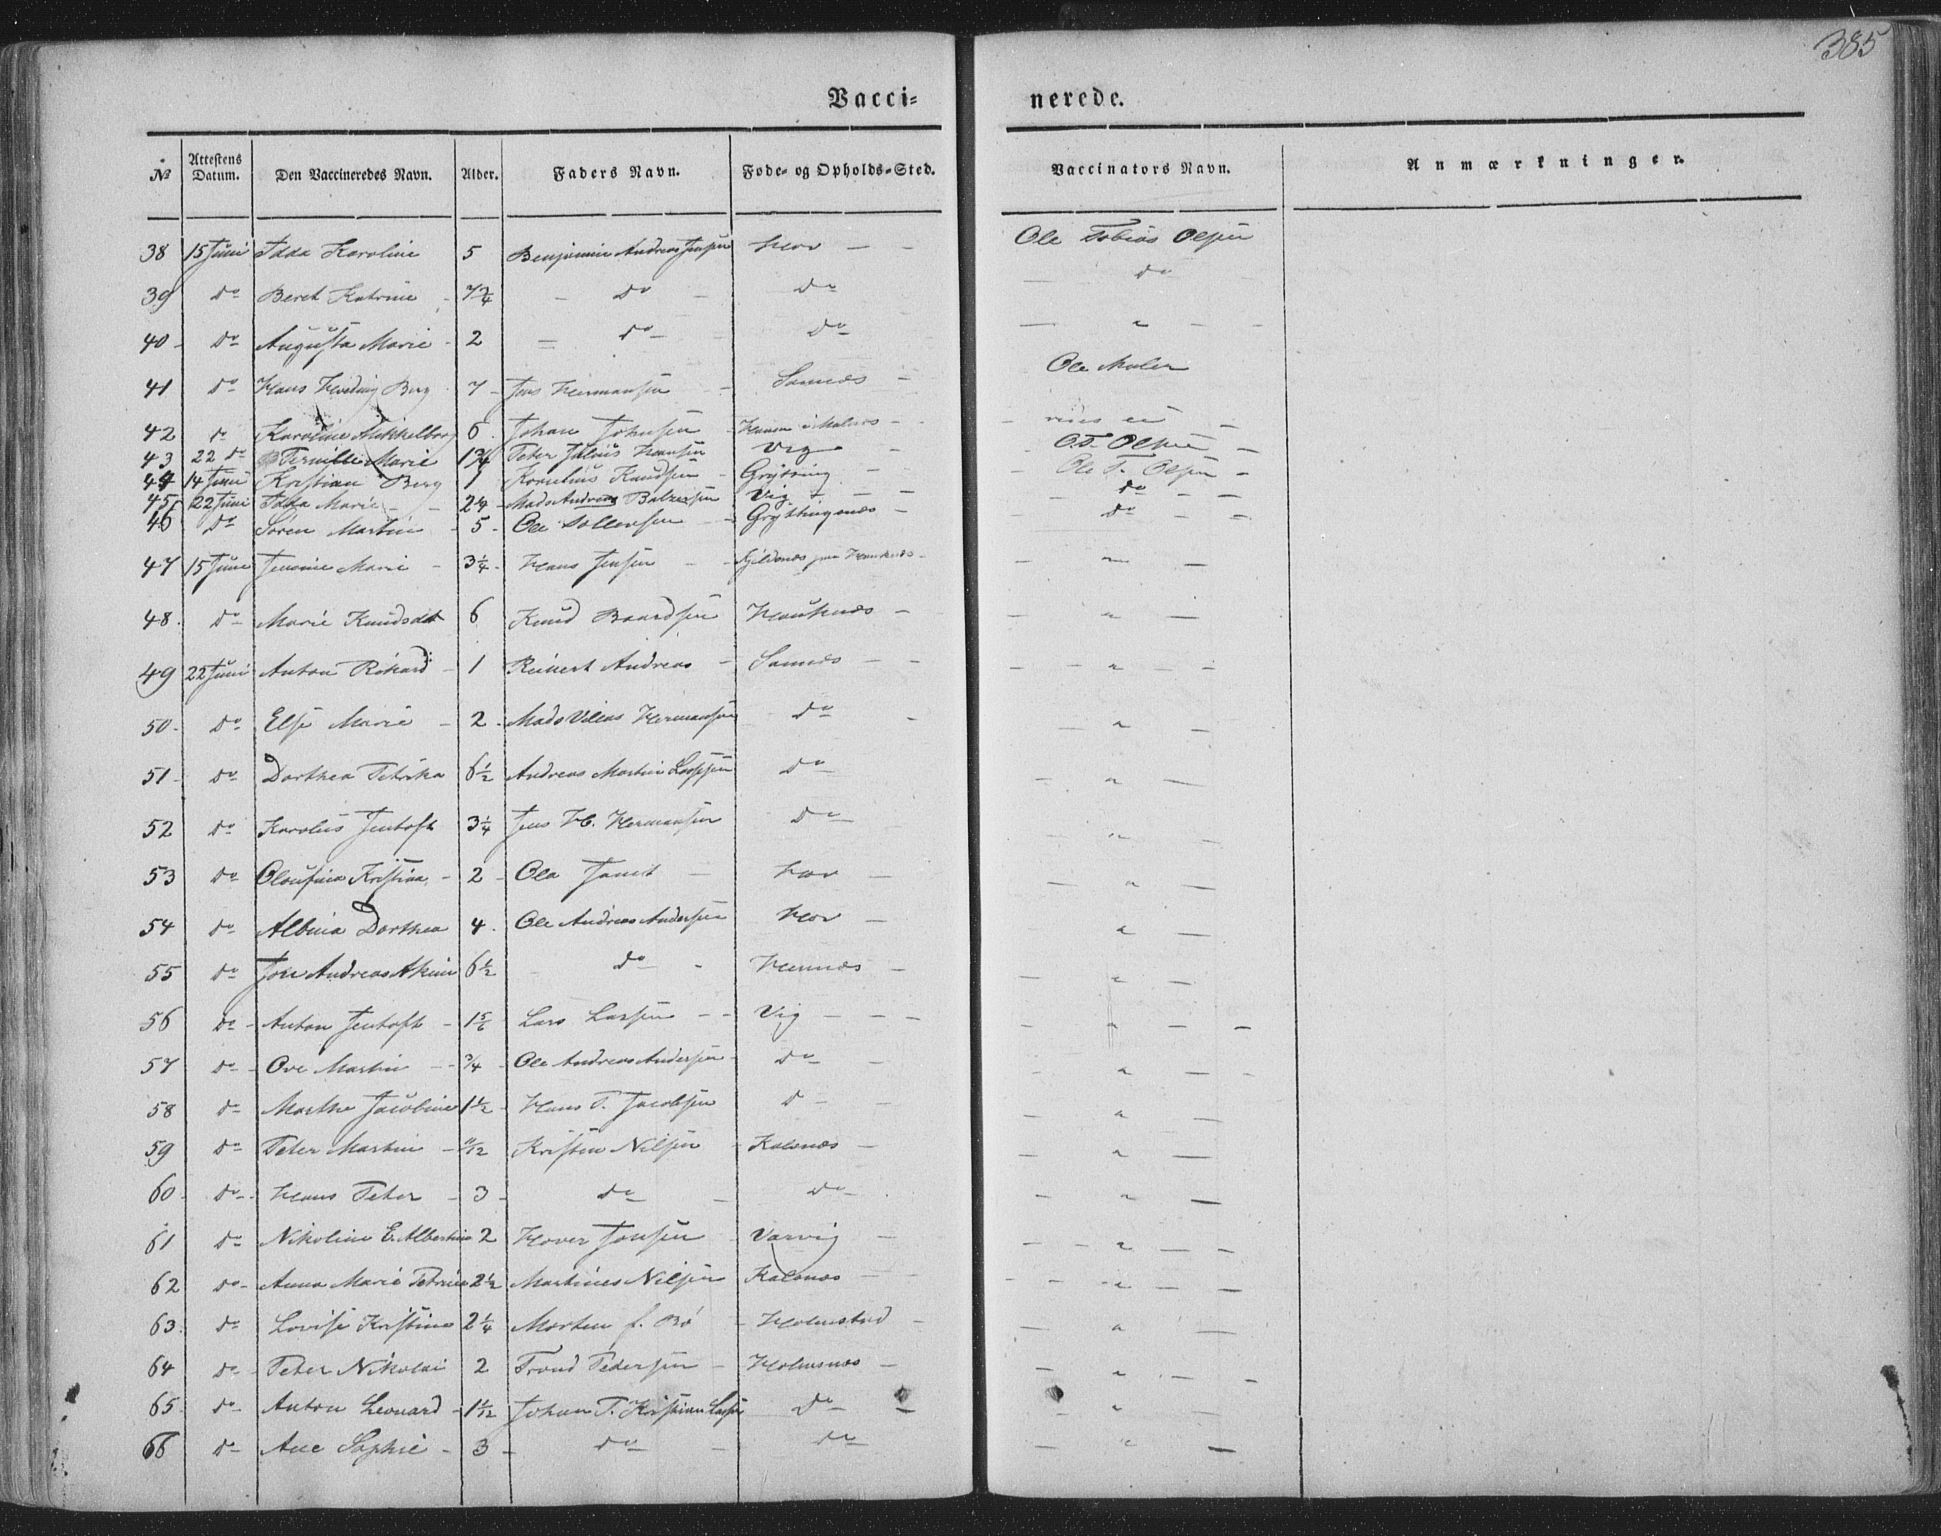 385
Vacci= nerede.
№ Attestens Datum. Den Vaccineredes Navn. Alder. Faders Navn. Føde- og Opholds-Sted. Vaccinators Navn. Anmærkninger.
38 15 Juni Idda Karoline 5 Benjamin Andreas Jensen Hov — — Ole Tobias Olsen
39 Do Beret Katrine - 7 3/4 — Do — Do — Do
40 - Do Augusta Marie - 2 = Do — Do — " — -
41 Do Hans Hveding Berg 7 - Jens Hermansen — Sannæs - Ole Maler
42 do Karoline Mikkelborg 6 Johan Johnsen
43 22 do Pernille Marie 1 3/4 Peter Julius Hansen Vig O.T. Olsen
44 14 Juni Kristian Berg 1 Kornelius Knudsen - Grytting Ole T. Olsen -
45 22 Juni Idda Marie - - 2 1/4 - Mads Andreas Balzersen Vig - — Do - —
46 Do Søren Martin - 5 - Ole Tollevsen - - Gryttingnæs - Do - —
47 15 Juni Jensine Marie - 3 1/4 - Hans Jensen - - — " —
48. Do Marie Knudsdat 6 Knud Baardsen Hauknæs - — " —
49 22 Juni Anton Rikard - 1 Reinert Andreas - Sannæs - - - - " - -
50. Do Else Marie - 2 - Mads Vilias Hermansen Do - — " —
51 - Do Dorthea Petrika 6 1/2 Andreas Martin Larssen Do - " —
52 Do Karolius Jentoft 3 1/4 Jens H. Hermansen Do — " —
53 Do Oloufina Kristina - 2 - Ole Tomit - Hov - — " —
54 Do Albina Dorthea 4. Ole Andreas Andersen Hov - — " —
55 Do Jon Andreas Akim 6 1/2 - Do - Hemnæs - — " —
56 Do - Anton Jentoft - 1 5/6 Lars Larsen - - Vig - - - — " — —
57 Do - Ove Martin - - 3/4 Ole Andreas Andersen - Do - — " —
58 Do Marthe Jacobine 1 1/2 - Hans P. Jacobsen D - — " —
59 Do Peter Martin - 11/12 Kristen Nilsen - Kalsnæs - — " —
60 Do - Hans Peter - 3 - Do - Do - — " —
61 Do Nikoline E. Albertine 2 Hover Jonsen Varvig - - - " - —
62 Do - Anna Marie Petrine 2 1/2 Martinus Nilsen Kalsnæs - - - - - " —
63. Do Lovise Kristine 2 1/4 Morten f. Bø - Holmstad - — " —
64 Do - Peter Nikolai 2 Trond Pedersen - Holmsnæs - — " — -
65 Do - Anton Leonard - 1 1/12 Johan P. Kristian Larsen Do - — " —
66 Do Ane Sophie - 3 - Do - Do — " —